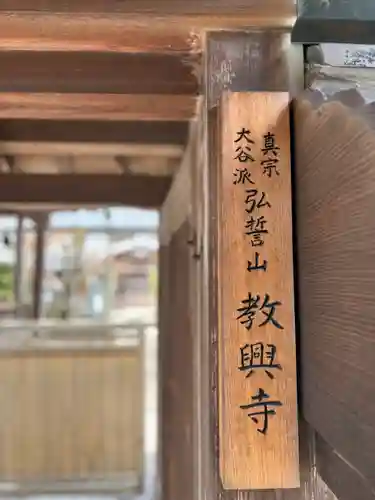 真宗
大谷派
弘誓山
教興寺